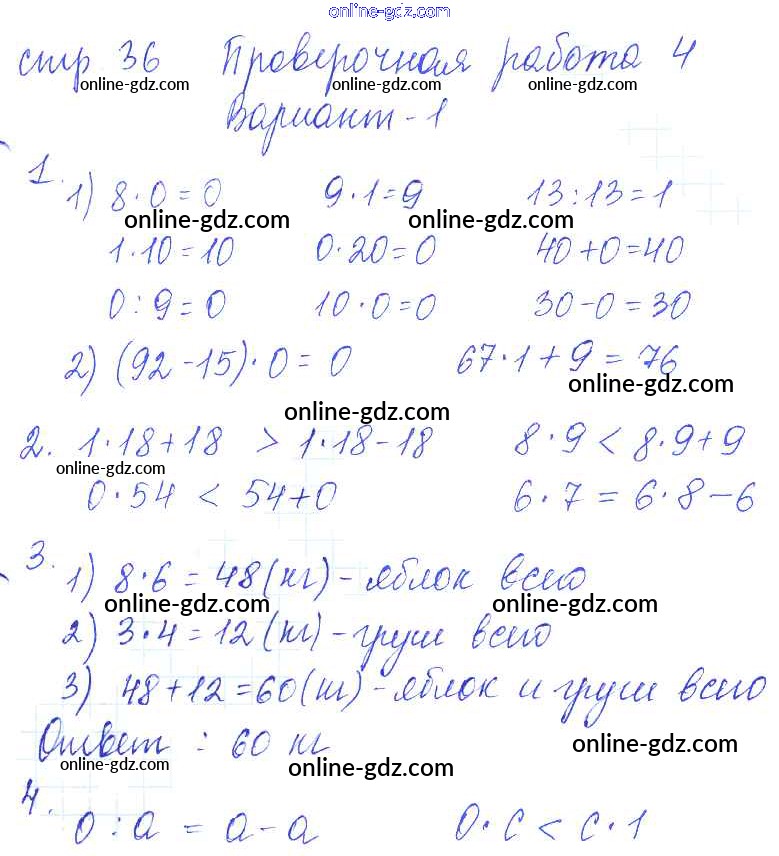 online-gdz.com
стр. 36 Проверочная работа 4
online-gdz.com online-gdz.com online-gdz.com
Вариант-1
1. 1) 8·0=0 9·1=9 13:13=1
online-gdz.com online-gdz.com
1·10=10 0·20=0 40+0=40
0:9=0 10·0=0 30-0=30
2) (92-15)·0=0 67·1+9=76
online-gdz.com
online-gdz.com
2. 1·18+18 > 1·18-18 8·9<8·9+9
online-gdz.com
0·54 < 54+0 6·7=6·8-6
3. 1) 8·6=48(кг)-яблок всего
online-gdz.com online-gdz.com
2) 3·4=12(кг)-груш всего
3) 48+12=60(кг)-яблок и груш всего
Ответ: 60 кг
online-gdz.com online-gdz.com online-gdz.com
4. 0:a=a-a 0·c<c·1